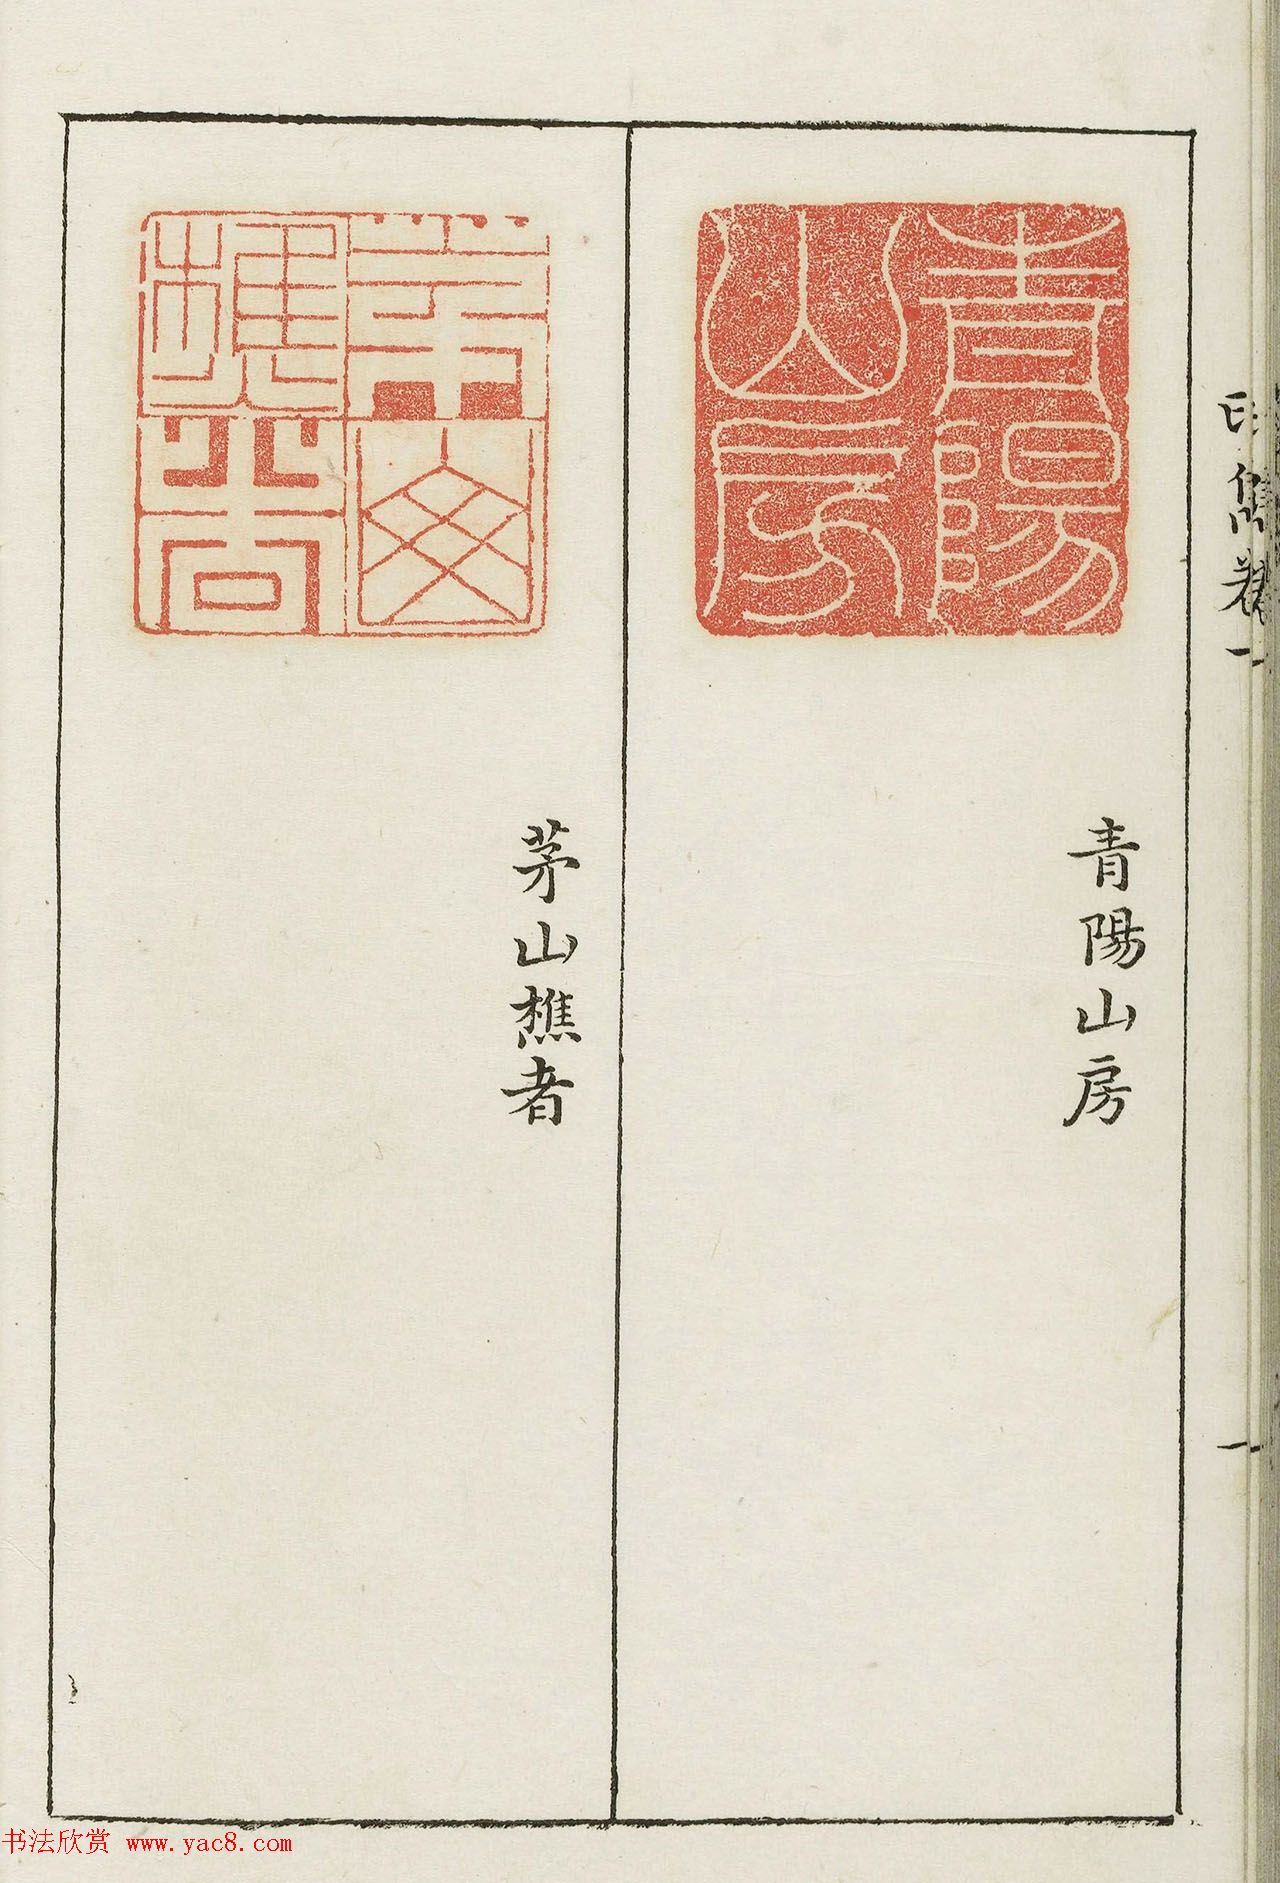 青陽山房
青陽山房
茅山樵者
茅山樵者
印雋卷一
一
书法欣赏 www.yac8.com